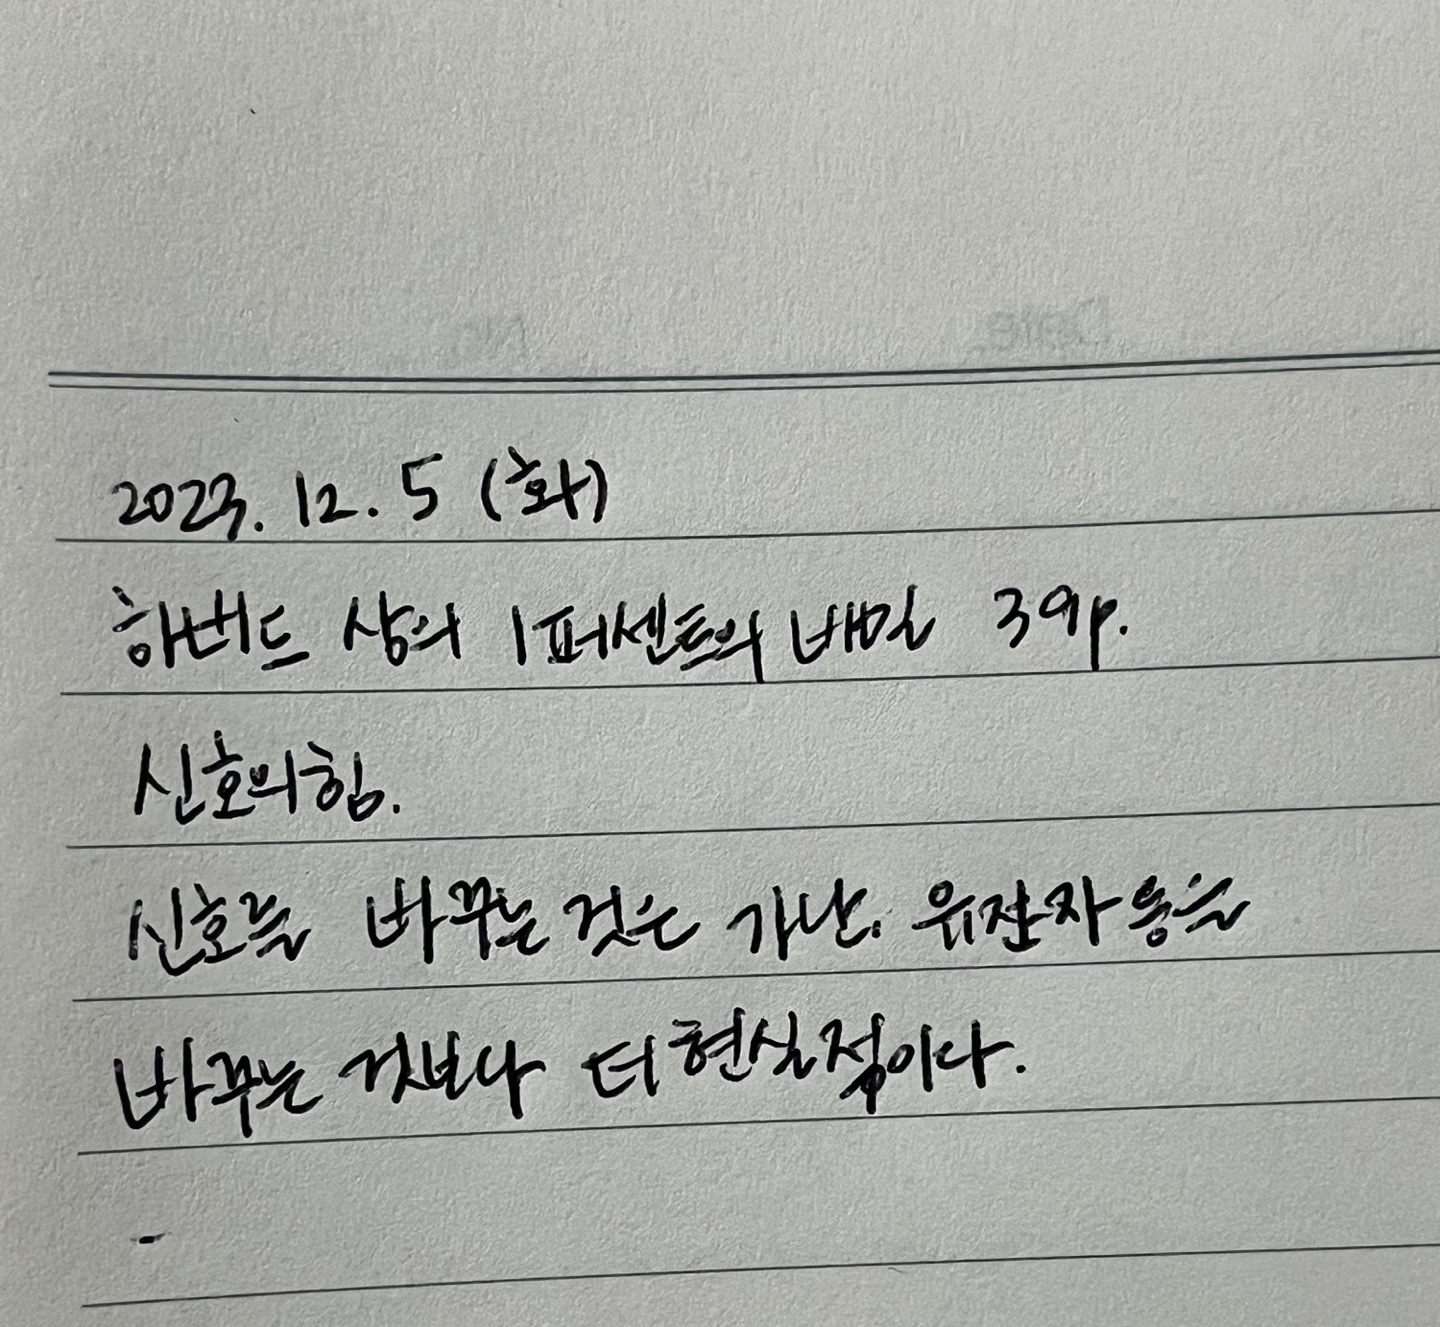 2023. 12. 5 (화)
하버드 상의 1퍼센트의 비밀 39p.
신호의 힘.
신호를 바꾸는 것은 가난. 유전자 등을
바꾸는 것보다 더 현실적이다.
-